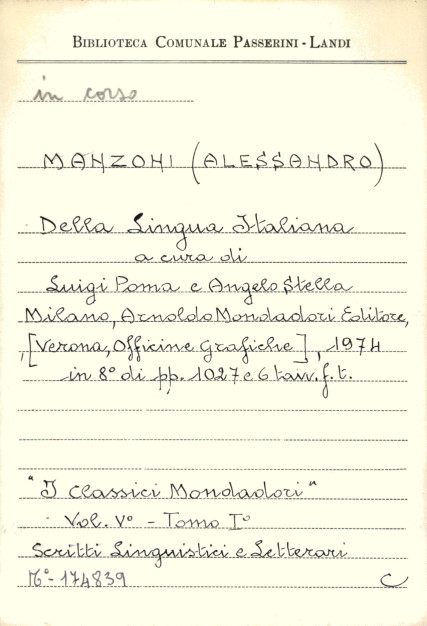 BIBLIOTECA COMUNALE PASSERINI - LANDI
in corso
MANZONI (ALESSANDRO)
Della Lingua Italiana
a cura di
Luigi Poma e Angelo Stella
Milano, Arnoldo Mondadori Editore,
[Verona, Officine Grafiche], 1974
in 8° di pp. 1027 e 6 tavv. f. t.
"I Classici Mondadori"
Vol. V° - Tomo I°
Scritti Linguistici e Letterari
N°- 174839 C